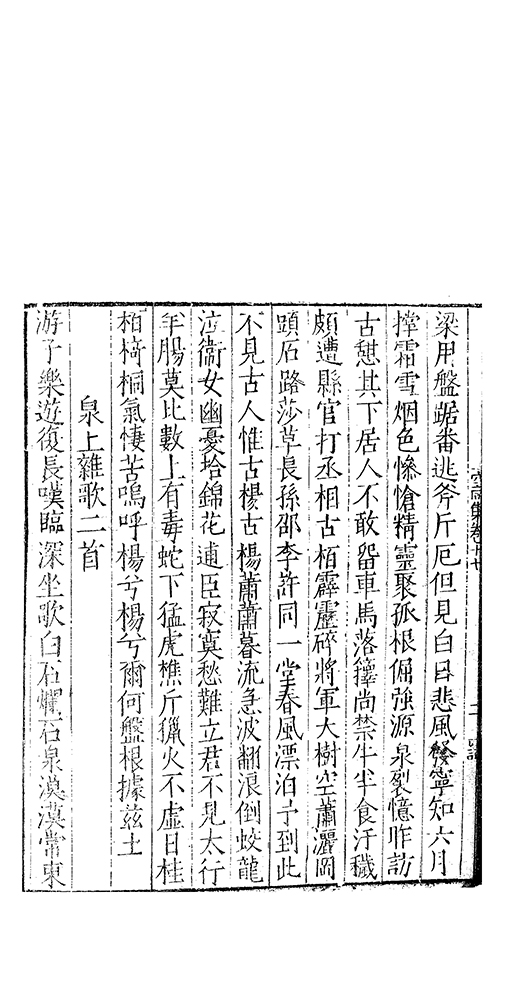 梁用盤踞番逃斧斤厄但見白日悲風發寧知六月
撑霜雪烟色慘愴精靈聚孤根倔強源泉裂憶昨訪
古憇其下居人不敢畱車馬落籜尚禁牛羊食汙穢
頗遭縣官打丞相古栢霹靂碎將軍大樹空蕭灑岡
頭石路莎草長孫邵李許同一堂春風漂泊予到此
不見古人惟古楊古楊蕭蕭暮流急波翻浪倒蛟龍
泣衞女幽憂拾錦花逋臣寂寞愁難立君不見太行
羊腸莫比數上有毒蛇下猛虎樵斤獵火不虛日桂
柏椅桐氣悽苦嗚呼楊兮楊兮爾何盤根據兹土
泉上雜歌二首
游子樂遊復長嘆臨深坐歌白石爛石泉漠漠常東
空同集卷十七
二